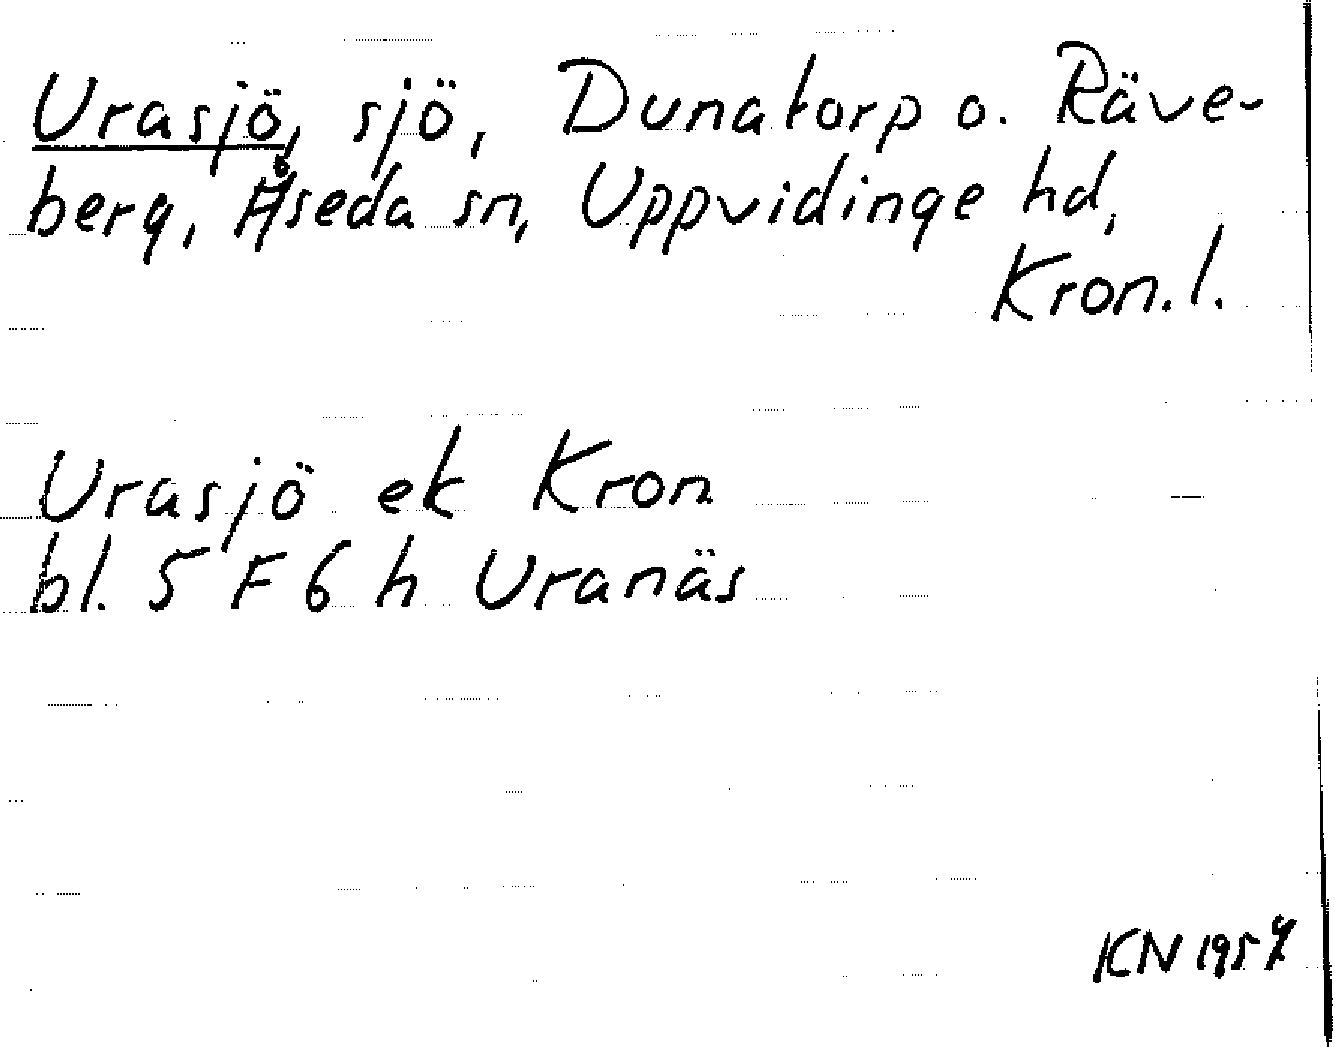 Urasjö, sjö, Dunatorp o. Räve-
berg, Åseda sn, Uppvidinge hd,
Kron. l.
Urasjö ek Kron
bl. 5 F 6 h Uranäs
KN 1957